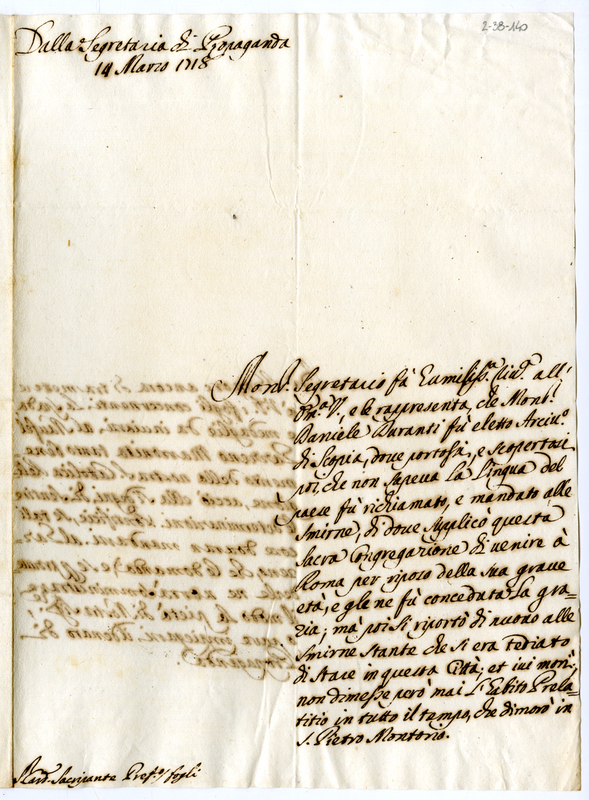 2-38-140
Dalla Segretaria di Propaganda
14 Marzo 1718
Mons.r Segretario fà humiliss.a all'
V., e le rappresenta, che Mons.r
Daniele Duranti fù eletto Arciu.o
di Scopia, doue portossi, e scopertasi
poi, che non sapeua la Lingua del
paese fù richiamato, e mandato alle
Smirne, di doue supplicò questa
Sacra Congregazione di uenire à
Roma per riposo della sua graue
età, e gle ne fù conceduta la gra=
zia; mà poi si riportò di nuouo alle
Smirne stante che si era tediato
di stare in questa Città, et iui morì,
non dimesse però mai l'habito Prela=
titio in tutto il tempo, che dimorò in
S. Pietro Montorio.
Card. Sacripante Pref.o fogli